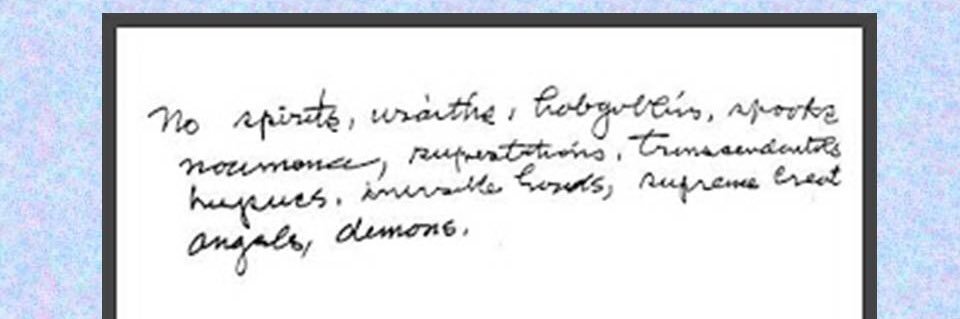 No spirits, wraiths, hobgoblins, spooks
noumena, superstitions, transcendentals
invisible hands, supreme
angels, demons.